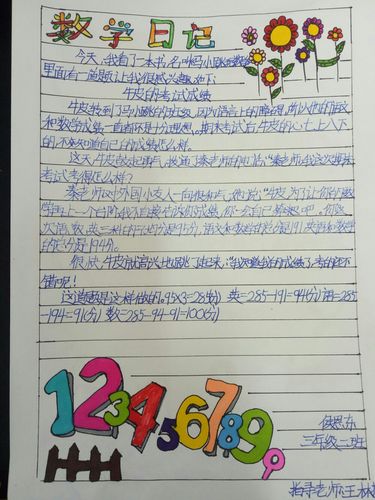 数学日记
今天,我看了一本书,名叫马小跳玩数学
里面有一道题让我很感兴趣如下:
牛皮的考试成绩
牛皮转到了马小跳的班级,因为语言上的障碍,所以他的语文
和数学成绩一直都不是十分理想。期末考试后,牛皮的心七上八下
的,不知道自己的成绩怎么样?
这天,牛皮鼓起勇气,拨通了秦老师的电话:“秦老师,我这次期末
考试考得怎么样?
秦老师对外国小友人一向很和气,他说:“牛皮,为了让你的数
学再上一个台阶,我不直接告诉你成绩,你自己算出来吧。你这
次语、数、英三科的平均分是95分,语文和数学的总分是191,英语和数学
的总分是194分。
很快,牛皮就高兴地跳了起来:“我知道我的成绩了,考的还不
错呢!
这道题是这样做的。95×3=285(分) 英=285-191=94(分)语=285
-194=91(分) 数=285-94-91=100(分)
1234567899
侯思东
三年级二班
指导老师:王林